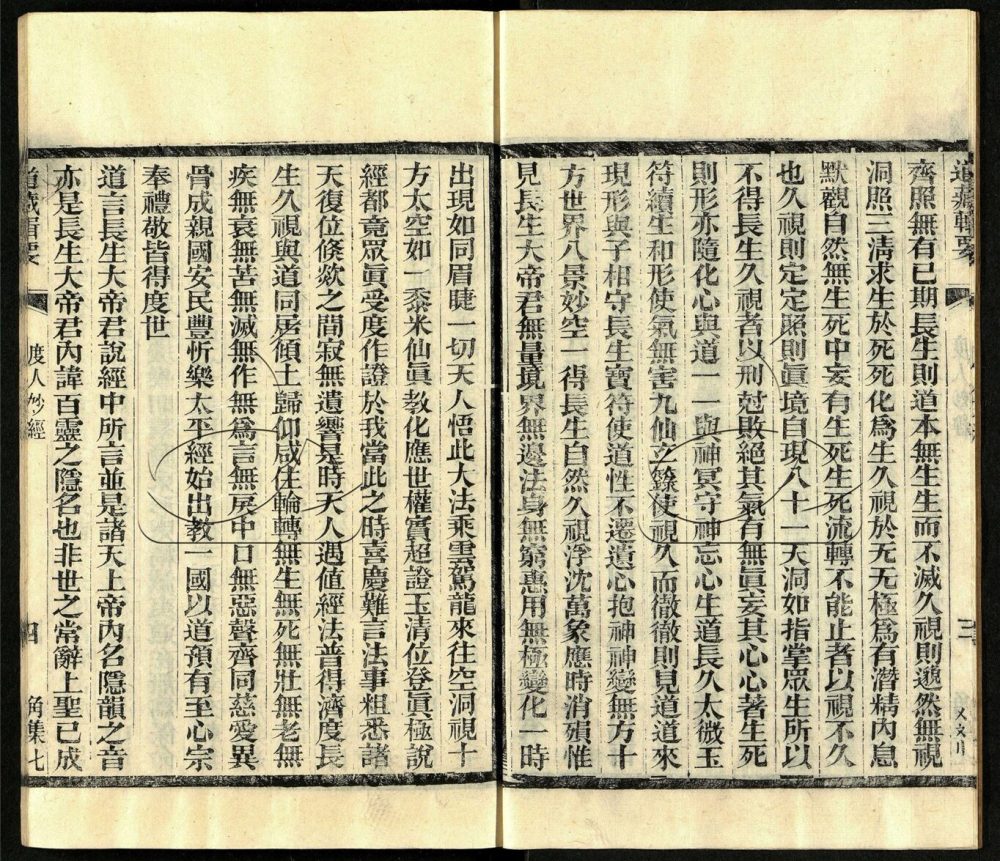 道藏輯要
齊照無有已期長生則道本無生生而不滅久視則邈然無視
洞照三淸求生於死死化爲生久視於无无極爲有潛精內息
默觀自然無生死中妄有生死生死流轉不能止者以視不久
也久視則定定照則眞境自現八十一天洞如指掌眾生所以
不得長生久視者以刑尅敗絕其氣有無眞妄其心心著生死
則形亦隨化心與道一一與神冥守神忘心生道長久太微玉
符續生和形使氣無害九仙之籙使視久而徹徹則見道道來
現形與子相守長生寶符使道性不遷遺心抱神神變無方十
方世界八景妙空一得長生自然久視浮沈萬象應時消殞惟
見長生大帝君無量境界無邊法身無窮惠用無極變化一時
出現如同眉睫一切天人悟此大法乘雲駕龍來往空洞視十
方太空如一黍米仙眞教化應世權實超證玉清位登眞極說
經都竟眾眞受度作證於我當此之時喜慶難言法事粗悉諸
天復位倐欻之間寂無遺響是時天人遇值經法普得濟度長
生久視與道同居傾土歸仰咸住輪轉無生無死無壯無老無
疾無衰無苦無滅無作無爲言無戾中口無惡聲齊同慈愛異
骨成親國安民豐忻樂太平經始出教一國以道預有至心宗
奉禮敬皆得度世
道言長生大帝君說經中所言並是諸天上帝內名隱韻之音
亦是長生大帝君內諱百靈之隱名也非世之常辭上聖已成
道藏輯要
度人妙經
四
角集七